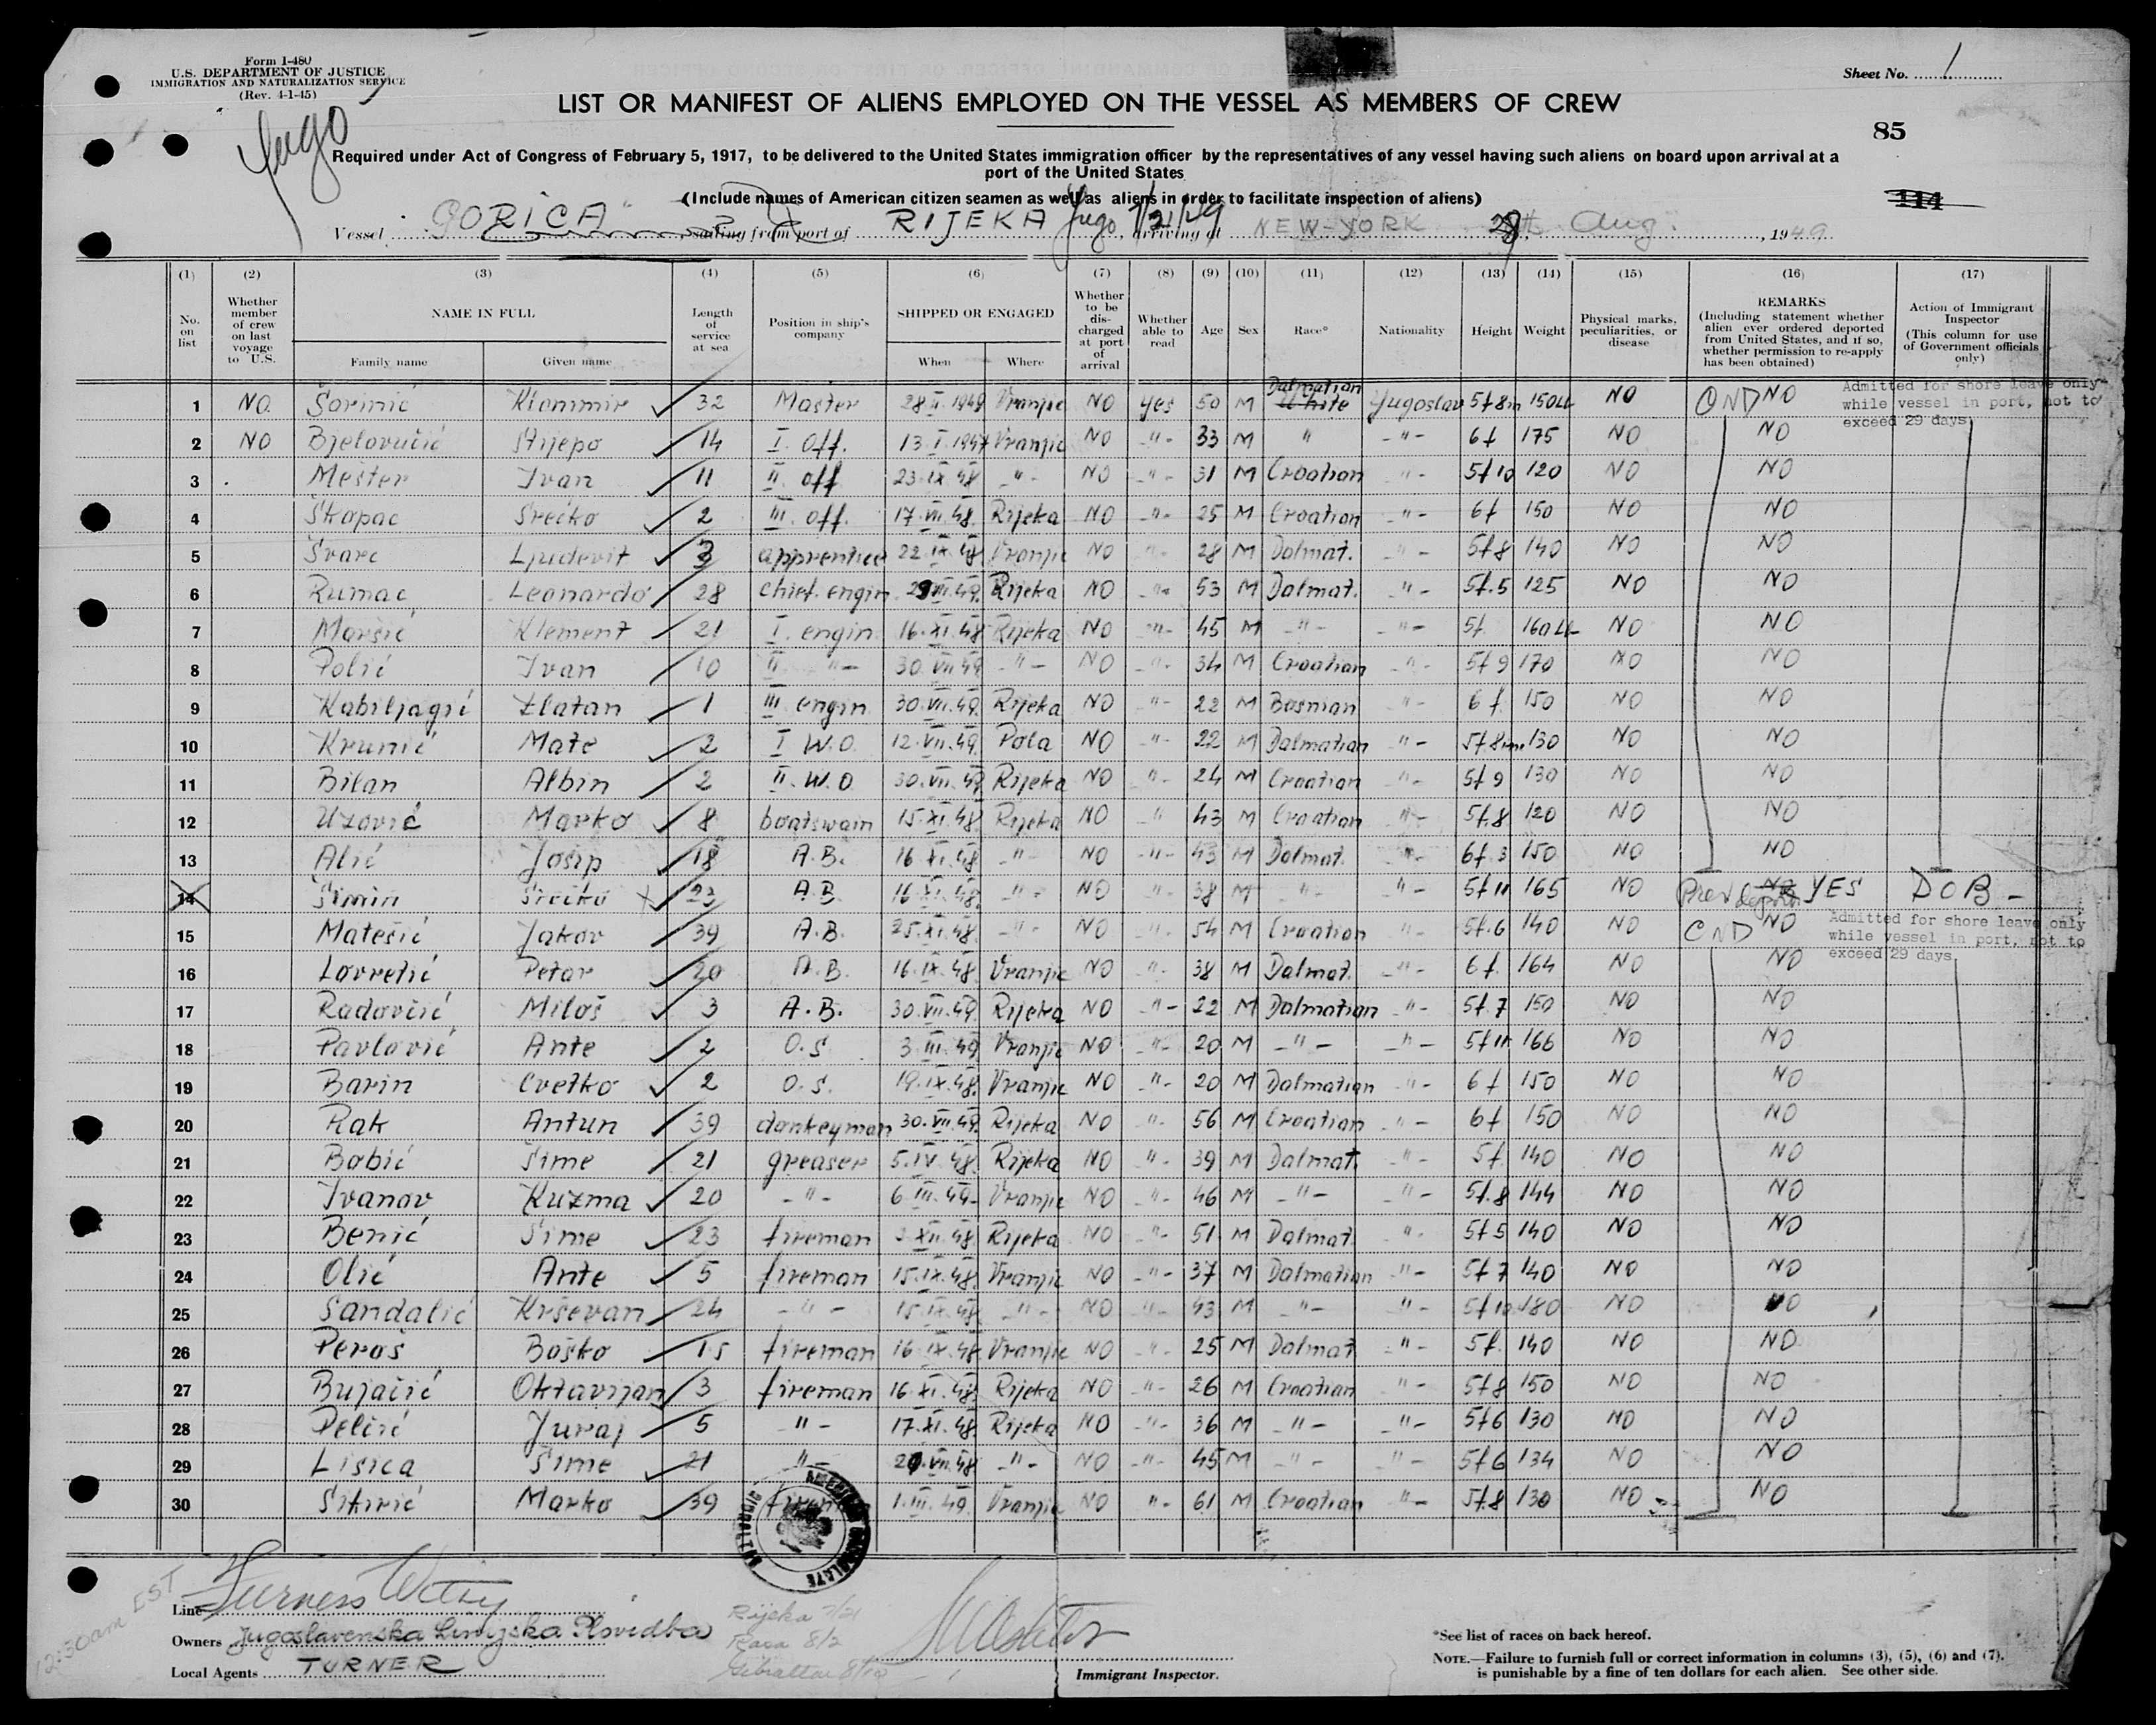 Form I-480
U.S. DEPARTMENT OF JUSTICE
IMMIGRATION AND NATURALIZATION SERVICE
(Rev. 4-1-45)
Yugo
Sheet No. 1
LIST OR MANIFEST OF ALIENS EMPLOYED ON THE VESSEL AS MEMBERS OF CREW
85
Required under Act of Congress of February 5, 1917, to be delivered to the United States immigration officer by the representatives of any vessel having such aliens on board upon arrival at a
port of the United States
(Include names of American citizen seamen as well as aliens in order to facilitate inspection of aliens)
114
Vessel "GORICA", sailing from port of RIJEKA Yugo 7/21/49, arriving at NEW-YORK Aug., 1949
(1) (2) (3) (4) (5) (6) (7) (8) (9) (10) (11) (12) (13) (14) (15) (16) (17)
No. on list Whether member of crew on last voyage to U.S. NAME IN FULL Family name Given name Length of service at sea Position in ship's company SHIPPED OR ENGAGED When Where Whether to be discharged at port of arrival Whether able to read Age Sex Race* Nationality Height Weight Physical marks, peculiarities, or disease REMARKS (Including statement whether alien ever ordered deported from United States, and if so, whether permission to re-apply has been obtained) Action of Immigrant Inspector (This column for use of Government officials only)
1 NO Šorinić 32 Master 28 II 1949 Vranjic NO yes 50 M Dalmatian White Yugoslav 5f 8in 150 NO NO Admitted for shore leave only while vessel in port, not to exceed 29 days
2 NO Bjelovučić Stijepo 14 I. Off. 13 I 1947 Vranjic NO -"- 33 M " -"- 6f 175 NO NO
3 Mešter Ivan 11 II. off 23 IX 48 -"- NO -"- 31 M Croatian "- 5f 10 120 NO NO
4 Škopac Srećko 2 III. off. 17 VII 48 Rijeka NO -"- 25 M Croatian "- 6f 150 NO NO
5 Švarc Ljudevit 3 apprentice 22 IX 48 Vranjic NO -"- 28 M Dalmat. "- 5f 8 140 NO NO
6 Rumac Leonardo 28 chief. engin VII 49 Rijeka NO -"- 53 M Dalmat. "- 5f.5 125 NO NO
7 Maršić Klement 21 I. engin 16 XI 48 Rijeka NO -"- 45 M -"- -"- 5f 160 NO NO
8 Polić Ivan 10 II "- 30 VII 49 -"- NO -"- 34 M Croatian "- 5f 9 170 NO NO
9 Kabiljagić Zlatan 1 III engin 30 VII 49 Rijeka NO "- 22 M Bosnian "- 6f 150 NO NO
10 Krunić Mate 2 I W.O. 12 VII 49 Pola NO "- 22 M Dalmatian "- 5f 8in 130 NO NO
11 Bilan Albin 2 II. W.O 30 VII 49 Rijeka NO "- 24 M Croatian "- 5f 9 130 NO NO
12 Uzović Marko 8 boatswain 15 XI 48 Rijeka NO " 43 M Croatian "- 5f.8 120 NO NO
13 Alić Josip 18 A.B. 16 XI 48 -"- NO -"- 43 M Dalmat. "- 6f 3 150 NO NO
14 Šimin Srećko 23 A.B. 16 XI 48 "- NO "- 38 M "- "- 5f 11 165 NO YES DOB -
15 Matešić Jakov 39 A.B. 25 XI 48 -"- NO "- 54 M Croatian "- 5f.6 140 NO NO Admitted for shore leave only while vessel in port, not to exceed 29 days
16 Lovretić Petar 20 A.B. 16 IX 48 Vranjic NO "- 38 M Dalmat. -"- 6f 164 NO NO
17 Radovčić Miloš 3 A.B. 30 VII 49 Rijeka NO -"- 22 M Dalmatian "- 5f.7 150 NO NO
18 Pavlović Ante 2 O.S. 3 III 49 Vranjic NO -"- 20 M -"- -"- 5f 11 166 NO NO
19 Barin Cvetko 2 O.S. 19 IX 48 Vranjic NO "- 20 M Dalmatian "- 6f 150 NO NO
20 Rak Antun 39 donkeyman 30 VII 49 Rijeka NO "- 56 M Croatian "- 6f 150 NO NO
21 Bobić Šime 21 greaser 5 IV 48 Rijeka NO "- 39 M Dalmat. "- 5f 140 NO NO
22 Ivanov Kuzma 20 -"- 6 III 49 Vranjic NO "- 46 M -"- "- 5f.8 144 NO NO
23 Benić Šime 23 fireman XII 48 Rijeka NO "- 51 M Dalmat. " 5f 5 140 NO NO
24 Olić Ante 5 fireman 15 IX 48 Vranjic NO -"- 37 M Dalmatian "- 5f 7 140 NO NO
25 Sandalić Krševan 24 -"- 15 IX 48 "- NO "- 43 M -"- "- 5f 10 180 NO NO
26 Peroš Boško 15 fireman 16 IX 48 Vranjic NO "- 25 M Dalmat. "- 5f. 140 NO NO
27 Bujačić Oktavijan 3 fireman 16 XI 48 Rijeka NO "- 26 M Croatian "- 5f 8 150 NO NO
28 Pelčić Juraj 5 "- 17 XI 48 Rijeka NO -"- 36 M -"- "- 5f 6 130 NO NO
29 Lisica Šime 21 "- VII 48 -"- NO -"- 45 M -"- "- 5f 6 134 NO NO
30 Marko 39 1 III 49 Vranjic NO "- 61 M Croatian "- 5f.8 130 NO NO
AMERICAN CONSULATE
12:30am EST
Line Furness Withy
Owners Jugoslavenska Linijska Plovidba
Local Agents TURNER
Rijeka 7/21
8/2
Gibraltar 8/10
Immigrant Inspector.
*See list of races on back hereof.
NOTE.—Failure to furnish full or correct information in columns (3), (5), (6) and (7),
is punishable by a fine of ten dollars for each alien. See other side.